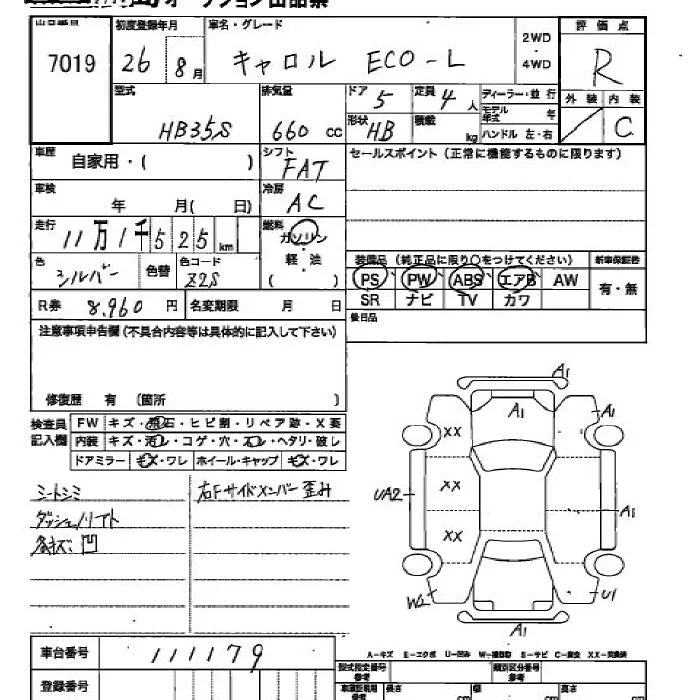 オークション出品票
出品番号 初度登録年月 車名・グレード 2WD 評価点
7019 26 8月 キャロル ECO-L ・ R
4WD
型式 排気量 ドア 5 定員 4人 ディーラー・並行 外装 内装
HB35S 660 cc 形状 HB 積載 kg モデル年式 年 C
ハンドル 左・右
車歴 自家用・( ) シフト FAT セールスポイント(正常に機能するものに限ります)
車検 年 月( 日) 冷房 AC
走行 11万1千525km 燃料 ガソリン
軽・油
( )
色 シルバー 色替 色コード Z2S 装備品(純正品に限り○をつけてください) 新車保証書
PS PW ABS エアB AW 有・無
SR ナビ TV カワ
R券 8,960円 名変期限 月 日 後日品
注意事項申告欄(不具合内容等は具体的に記入して下さい)
修復歴 有 (箇所 )
検査員記入欄 FW キズ・飛石・ヒビ割・リペア跡・X要
内装 キズ・汚レ・コゲ・穴・スレ・ヘタリ・破レ
ドアミラー キズ・ワレ ホイール・キャップ キズ・ワレ
シートシミ 右Fサイドメンバー歪み
ダッシュノリアト
各キズ、凹
A1
A1 A1
XX
XX
UA2 A1
XX
W2 U1
A1
A-キズ E-エクボ U-凹み W-補修跡 S-サビ C-腐食 XX-交換済
車台番号 111179
型式指定番号 参考 類別区分番号 参考
登録番号 長さ cm 幅 cm 高さ cm